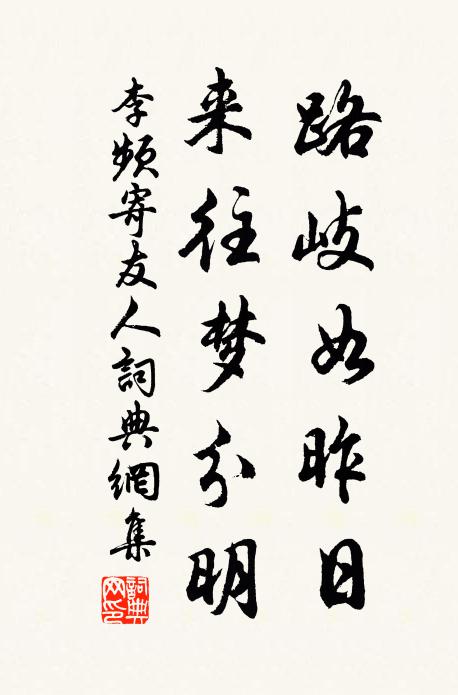 路岐如昨日
来往梦分明
李频寄友人詞典網集
詞典
网印